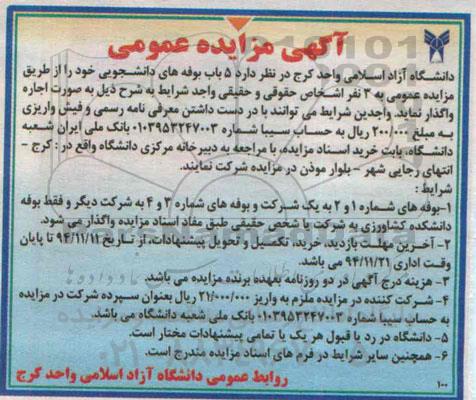 آگهی مزایده عمومی
دانشگاه آزاد اسلامی واحد کرج در نظر دارد ۵ باب بوفه های دانشجویی خود را از طریق
مزایده عمومی به ۳ نفر اشخاص حقوقی و حقیقی واجد شرایط به شرح ذیل به صورت اجاره
واگذار نماید. واجدین شرایط می توانند با در دست داشتن معرفی نامه رسمی و فیش واریزی
به مبلغ ۲۰۰/۰۰۰ ریال به حساب سیبا شماره ۰۱۰۳۹۵۳۲۴۷۰۰۳ بانک ملی ایران شعبه
دانشگاه، بابت خرید اسناد مزایده، با مراجعه به دبیرخانه مرکزی دانشگاه واقع در : کرج -
انتهای رجایی شهر - بلوار موذن در مزایده شرکت نمایند.
شرایط :
۱-بوفه های شماره ۱ و ۲ به یک شرکت و بوفه های شماره ۳ و ۴ به شرکت دیگر و فقط بوفه
دانشکده کشاورزی به شرکت یا شخص حقیقی طبق مفاد اسناد مزایده واگذار می شود.
۲- آخرین مهلت بازدید، خرید، تکمیل و تحویل پیشنهادات، از تاریخ ۹۴/۱۱/۱۲ تا پایان
وقت اداری ۹۴/۱۱/۲۱ می باشد.
۳- هزینه درج آگهی در دو روزنامه بعهده برنده مزایده می باشد.
۴- شرکت کننده در مزایده ملزم به واریز ۲۱/۰۰۰/۰۰۰ ریال بعنوان سپرده شرکت در مزایده
به حساب سیبا شماره ۰۱۰۳۹۵۳۲۴۷۰۰۳ بانک ملی شعبه دانشگاه می باشد.
۵- دانشگاه در رد یا قبول هر یک یا تمامی پیشنهادات مختار است.
۶- همچنین سایر شرایط در فرم های اسناد مزایده مندرج است.
روابط عمومی دانشگاه آزاد اسلامی واحد کرج
۱۰۰